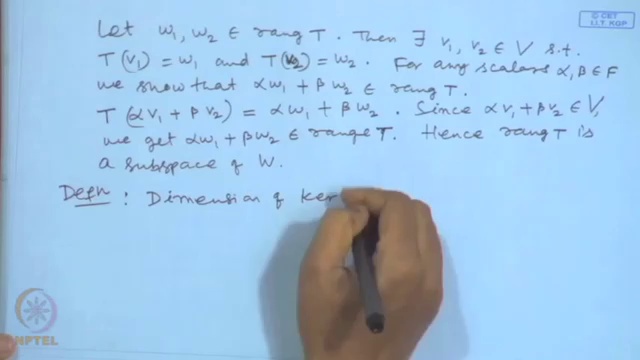 © CET
I.I.T. KGP
Let w₁, w₂ ∈ rang T. Then ∃ v₁, v₂ ∈ V s.t.
T(v₁) = w₁ and T(v₂) = w₂. For any scalars α, β ∈ F
we show that αw₁ + βw₂ ∈ rang T.
T(αv₁ + βv₂) = αw₁ + βw₂. Since αv₁ + βv₂ ∈ V,
we get αw₁ + βw₂ ∈ range T. Hence rang T is
a subspace of W.
Defn : Dimension of ker
NPTEL